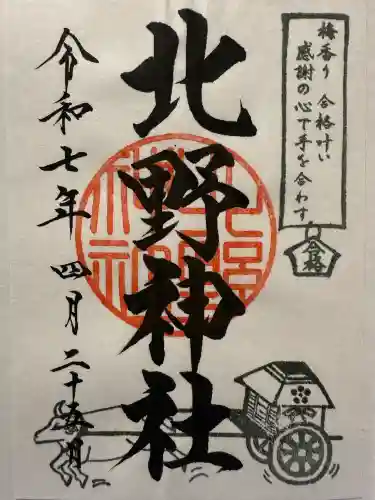 梅香り 合格叶い
感謝の心で手を合わす。
合格
北野神社
北野
神社
令和七年四月二十五日